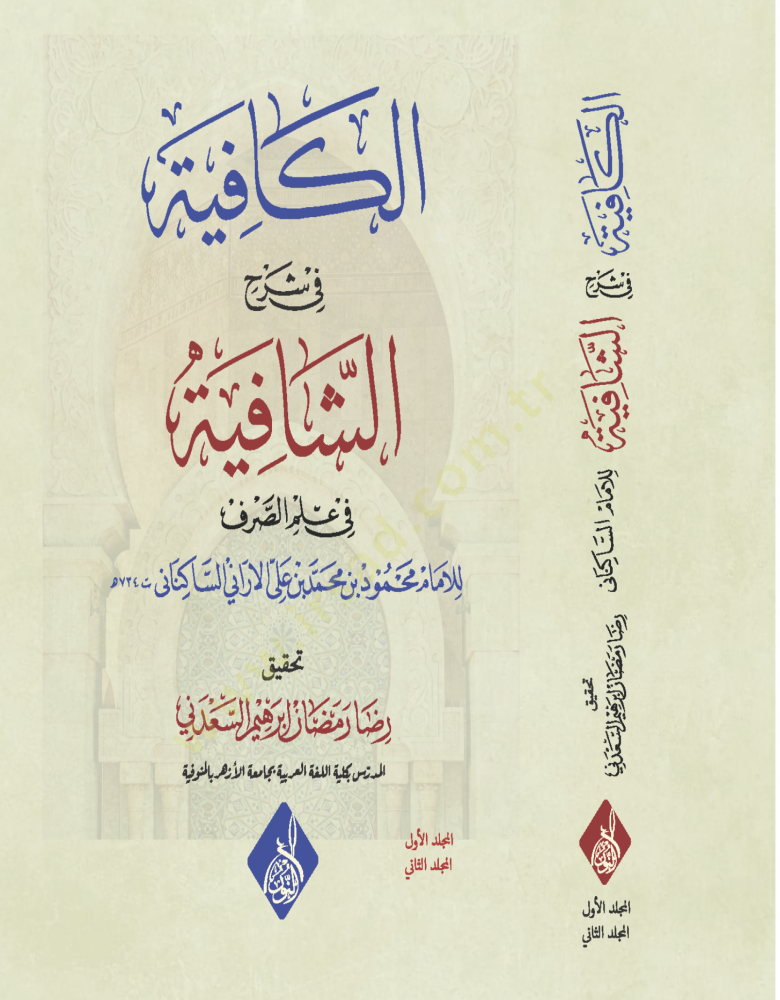 الكَافِيَة
فِي شَرْحِ
الشَّافِيَةُ
فِي عِلْمِ الصَّرْف
لِلإمَام مَحْمُوْد بْن مُحَمَّد بْن عَلي الأرَاني السَّاكِنَاني ت ٧٣٤ هـ
تحقيق
رِضَا رَمَضَان إبرَهِيْم السَّعْدَنِي
المدرّس بكلية اللغة العربية بجامعة الأزهر بالمنوفية
النُّوْر
المجلد الأول
المجلد الثاني
الكَافِيَة
فِي شَرْحِ
الشَّافِيَةُ
لِلإمَام السَّاكِنَانى
تحقيق
رِضَا رَمَضَان إبرَهِيْم السَّعْدَنِي
النُّوْر
المجلد الأول
المجلد الثاني